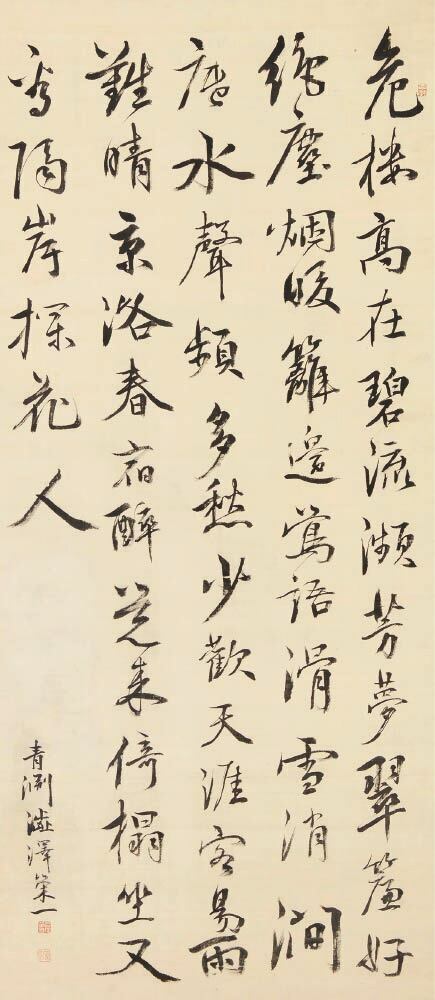 危樓高在碧流瀕芳夢翠簾好
絶塵烟暖籬邊鶯語滑雪消澗
底水聲頻多愁少歡天涯客易雨
難晴京洛春宿醉覺来倚榻坐又
看隔岸探花人
青淵澁澤榮一